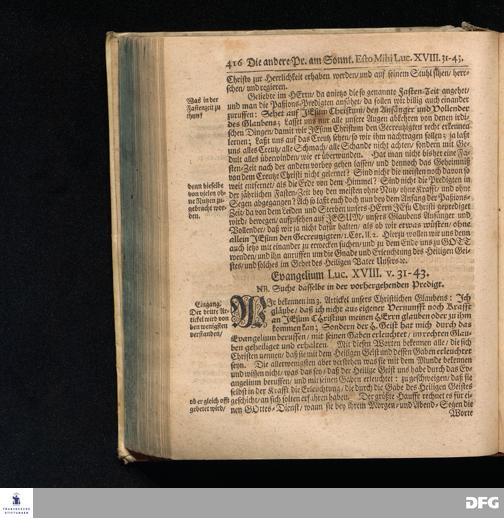 416 Die andere Pr. am Sonnt. Esto Mihi Luc. XVIII. 31-43.
Christo zur Herrlichkeit erhaben werden/ und auf seinem Stuhl sitzen/ herr-
schen/ und regieren.
Geliebte im HErrn/ da anietzo die so genannte Fasten-Zeit angehet/
und man die Paßions-Predigten anfähet/ da sollen wir billig auch einander
zuruffen: Sehet auf JEsum Christum/ den Anfänger und Vollender
des Glaubens; Laßt uns nur alle unsere Augen abkehren von denen irrdi-
schen Dingen/ damit wir JEsum Christum den Gecreutzigten recht erkennen
lernen; Laßt uns auf das Creutz sehen/ so wir ihm nachtragen sollen; ja laßt
uns alles Creutz/ alle Schmach/ alle Schande nicht achten/ sondern mit Ge-
dult alles überwinden/ wie er überwunden. Hat man nicht bisher eine Fa-
sten-Zeit nach der andern vorbey gehen lassen/ und dennoch das Geheimniß
von dem Creutze Christi nicht gelernet? Sind nicht die meisten noch davon so
weit entfernet/ als die Erde von dem Himmel? Sind nicht die Predigten in
der jährlichen Fasten-Zeit bey den meisten ohne Nutz/ ohne Krafft/ und ohne
Segen abgegangen? Ach so laßt euch doch nun bey dem Anfang der Paßions-
Zeit/ da von dem Leiden und Sterben unsers HErrn JEsu Christi geprediget
wird/ bewegen/ aufzusehen auf JESUM/ unsers Glaubens Anfänger und
Vollender/ daß wir ja nicht dafür halten/ als ob wir etwas wüsten/ ohne
allein JEsum den Gecreutzigten/ 1. Cor. II. 2. Hierzu wollen wir uns denn
auch ietzo mit einander zu erwecken suchen/ und zu dem Ende uns zu GOTT
wenden/ und ihn anruffen um die Gnade und Erleuchtung des Heiligen Gei-
stes/ und solches im Gebet des Heiligen Vater Unsers ꝛc.
Was in der
Fastenzeit zu
thun?
denn dieselbe
von vielen oh-
ne Nutzen zu-
gebracht wor-
den.
Evangelium Luc. XVIII. v. 31-43.
NB. Suche dasselbe in der vorhergehenden Predigt.
Eingang:
Der dritte Ar-
tickel wird von
den wenigsten
verstanden/
WIr bekennen im 3. Artickel unsers Christlichen Glaubens: Ich
gläube/ daß ich nicht aus eigener Vernunfft noch Krafft
an JEsum CHristum meinen HErrn glauben oder zu ihm
kommen kan; Sondern der H. Geist hat mich durch das
Evangelium beruffen/ mit seinen Gaben erleuchtet/ im rechten Glau-
ben geheiliget und erhalten. Mit diesen Worten bekennen alle/ die sich
Christen nennen/ daß sie mit dem Heiligen Geist und dessen Gaben erleuchtet
seyn. Die allerwenigsten aber verstehen was sie mit dem Munde bekennen
und wissen nicht/ was das sey/ daß der Heilige Geist uns habe durch das Ev-
angelium beruffen/ und mit seinen Gaben erleuchtet: zu geschweigen/ daß sie
selbst in der Krafft die Erleuchtung/ die durch die Gabe des Heiligen Geistes
geschicht/ an sich solten erfahren haben. Der gröste Hauffe rechnet es für ei-
nen GOttes-Dienst/ wann sie bey ihrem Morgen- und Abend-Segen die
ob er gleich offt
gebetet wird/
Worte
FRANCKESCHE
STIFTUNGEN
DFG